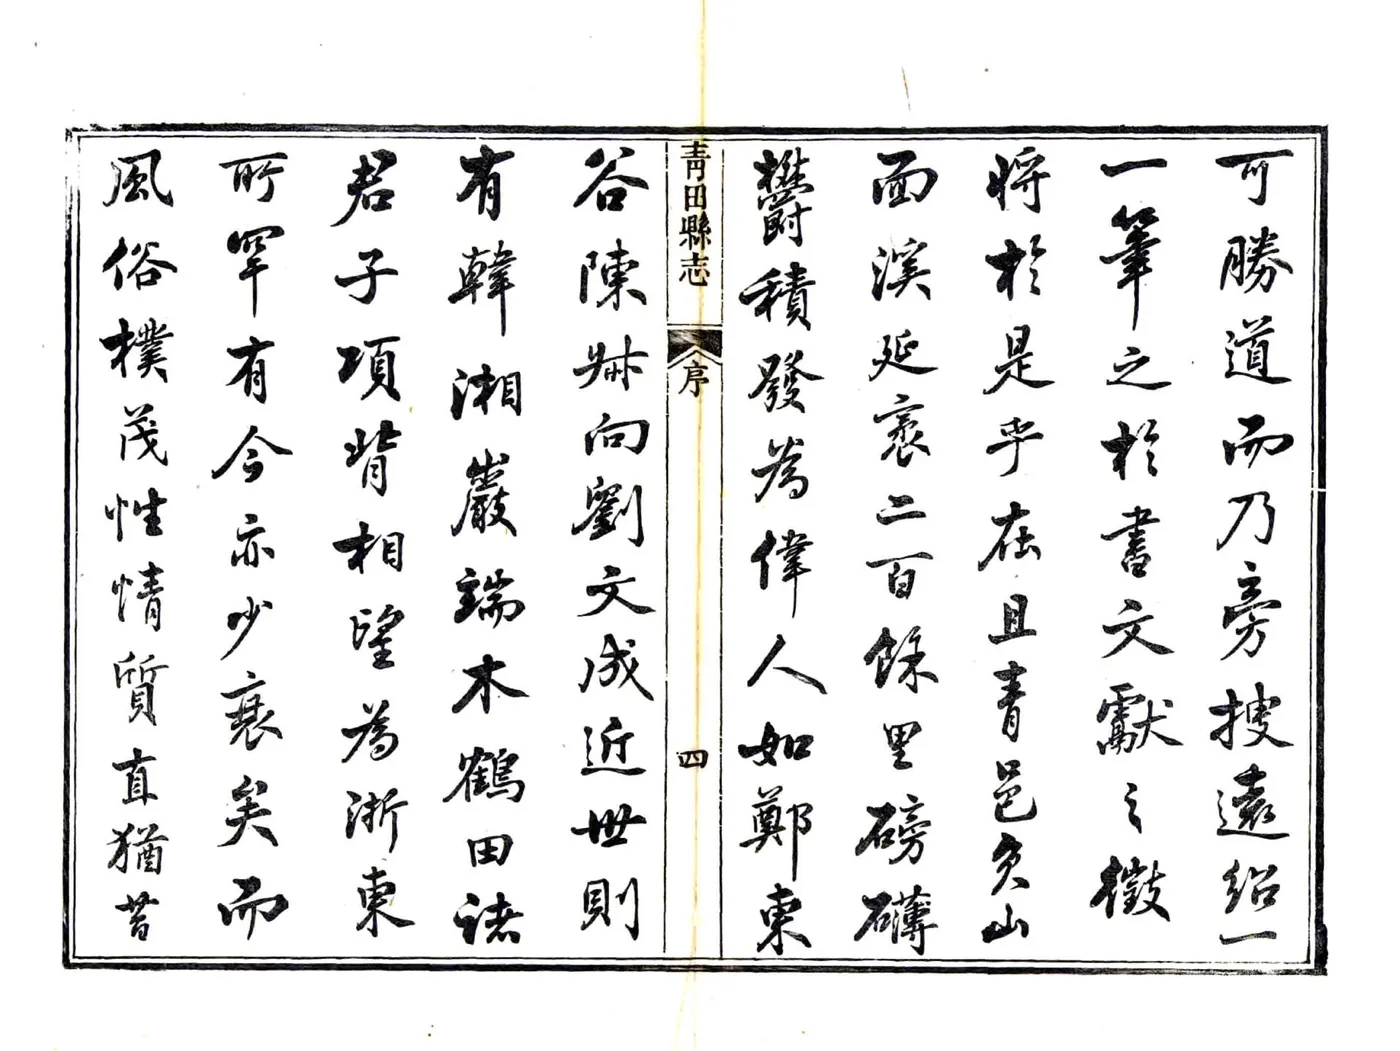 可勝道而乃旁搜遠紹一
一筆之於書文獻之徵
將於是乎在且青邑負山
面溪延袤二百餘里磅礴
鬱積發為偉人如鄭東
青田縣志
序
四
谷陳叔向劉文成近世則
有韓湘巖端木鶴田諸
君子項背相望為浙東
所罕有今亦少衰矣而
風俗樸茂性情質直猶昔